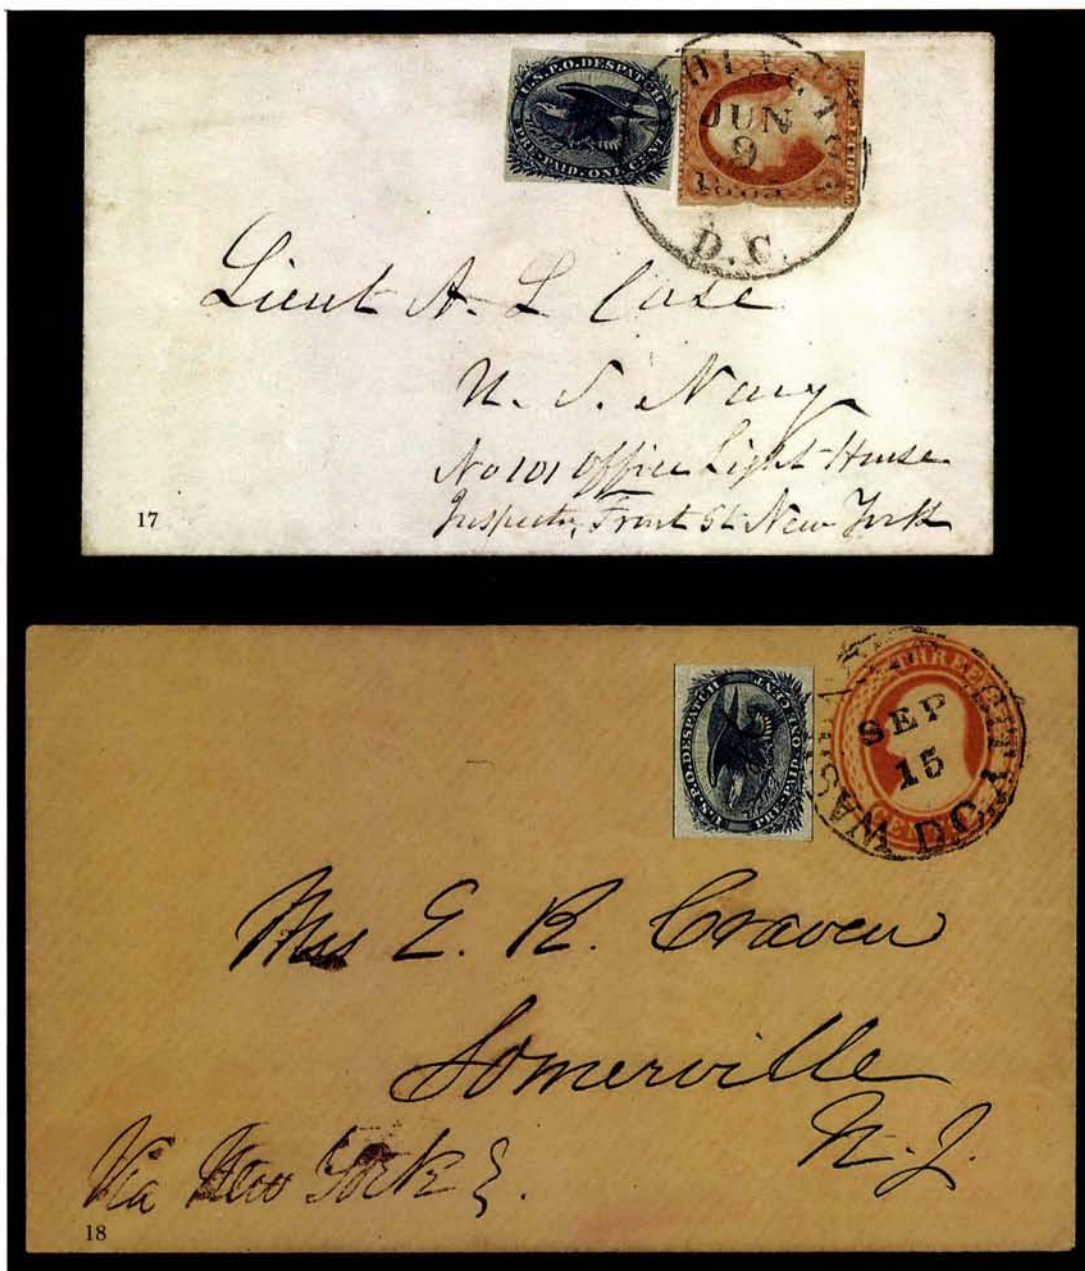 U.S.P.O. DESPATCH
PRE-PAID. ONE CENT.
JUN
9
D.C.
Lieut A. L Case
U. S. Navy
No 101 Office Light-House
Inspector, Front St New-York
17
U.S.P.O. DESPATCH
PRE-PAID. ONE CENT
THREE
WASHINGTON CITY
SEP
15
D.C.
Mrs E. R. Craven
Somerville
N. J.
Via New York
18